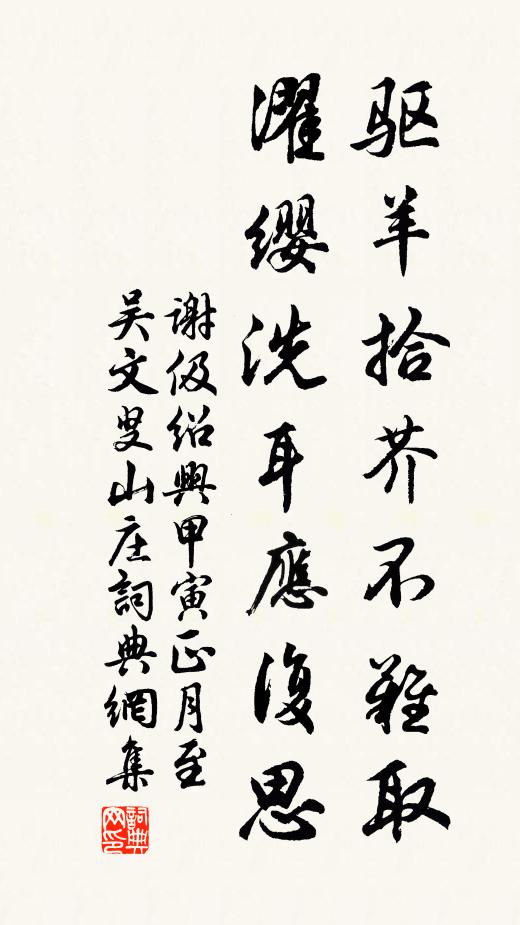 驱羊拾芥不難取
濯缨洗耳應復思
谢伋绍興甲寅正月至
吴文叟山庄詞典網集
詞典网印